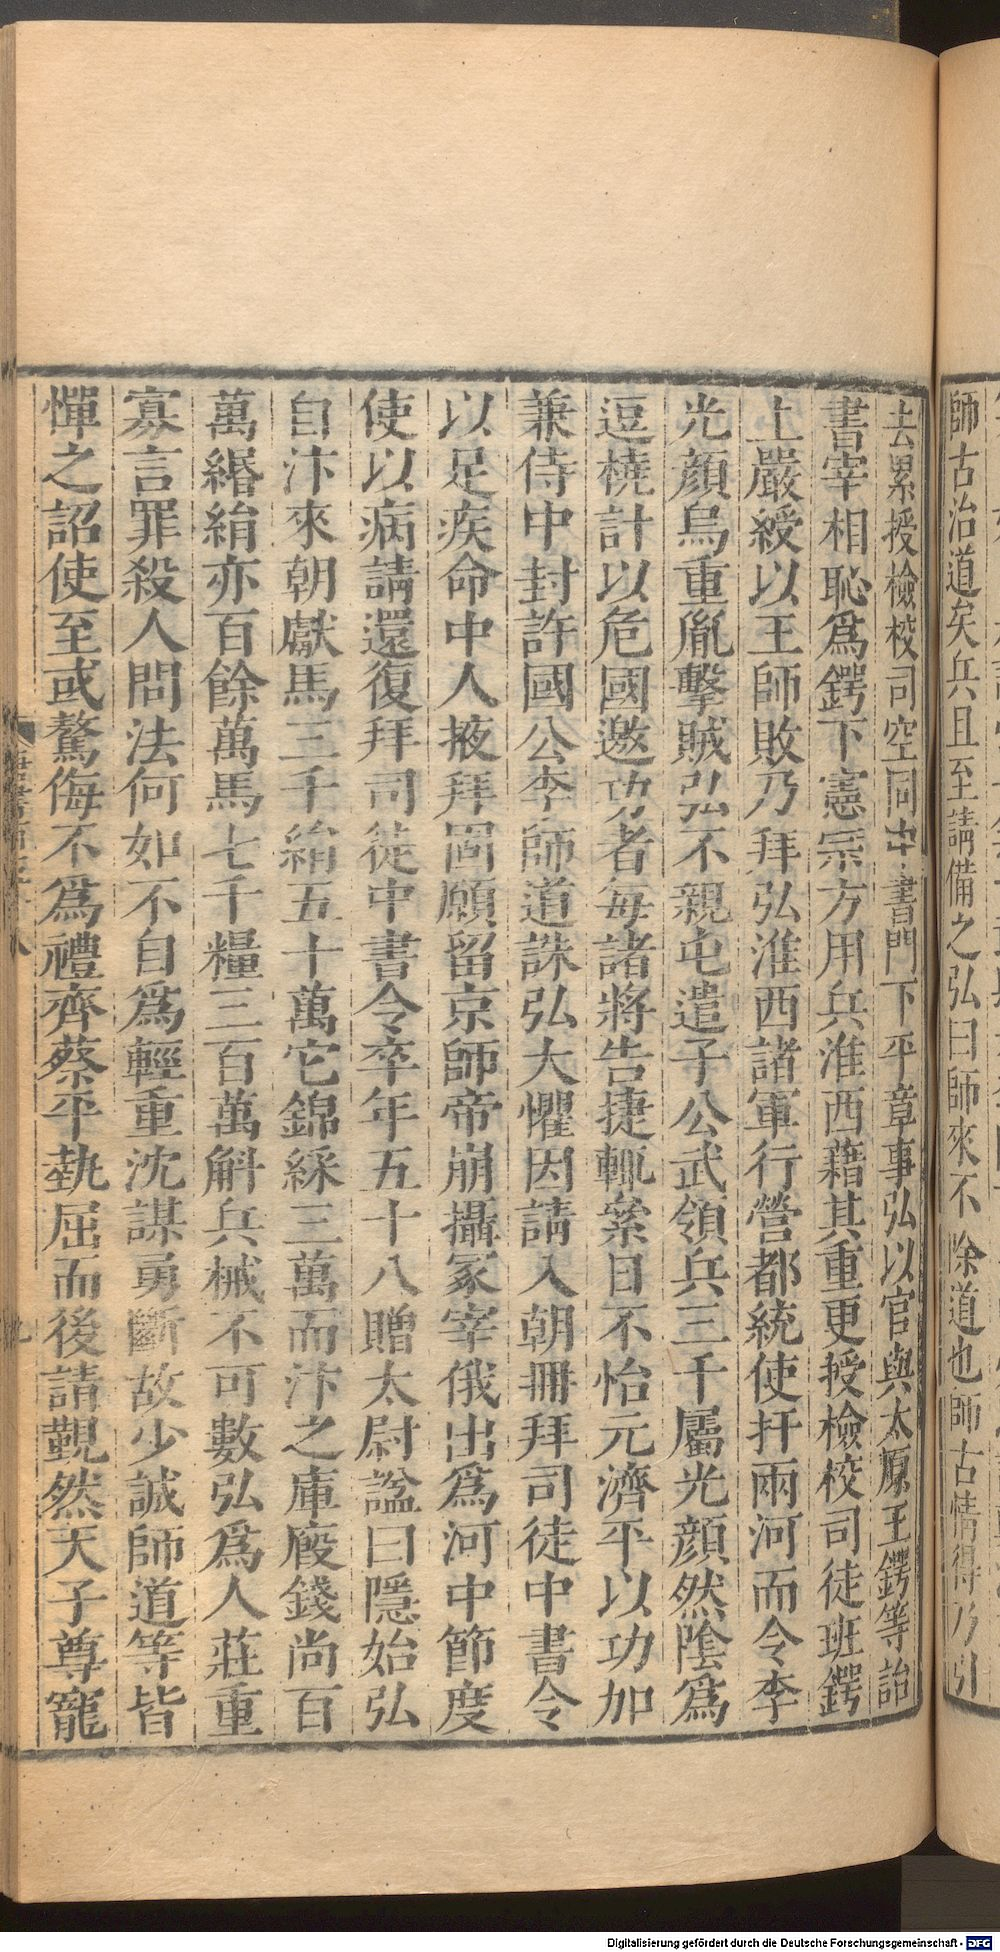 師古治道矣兵且至請備之弘曰師來不除道也師古情得乃引
去累授檢校司空同中書門下平章事弘以官與太原王鍔等詒
書宰相恥爲鍔下憲宗方用兵淮西藉其重更授檢校司徒班鍔
上嚴綬以王師敗乃拜弘淮西諸軍行營都統使扞兩河而令李
光顔烏重胤擊賊弘不親屯遣子公武領兵三千屬光顔然陰爲
逗橈計以危國邀功者每諸將告捷輒累日不怡元濟平以功加
兼侍中封許國公李師道誅弘大懼因請入朝冊拜司徒中書令
以足疾命中人掖拜固願留京師帝崩攝冢宰俄出爲河中節度
使以病請還復拜司徒中書令卒年五十八贈太尉諡曰隱始弘
自汴來朝獻馬三千絹五十萬它錦綵三萬而汴之庫廄錢尚百
萬緡絹亦百餘萬馬七千糧三百萬斛兵械不可數弘爲人莊重
寡言罪殺人問法何如不自爲輕重沈謀勇斷故少誠師道等皆
憚之詔使至或驁侮不爲禮齊蔡平埶屈而後請覲然天子尊寵
Digitalisierung gefördert durch die Deutsche Forschungsgemeinschaft - DFG